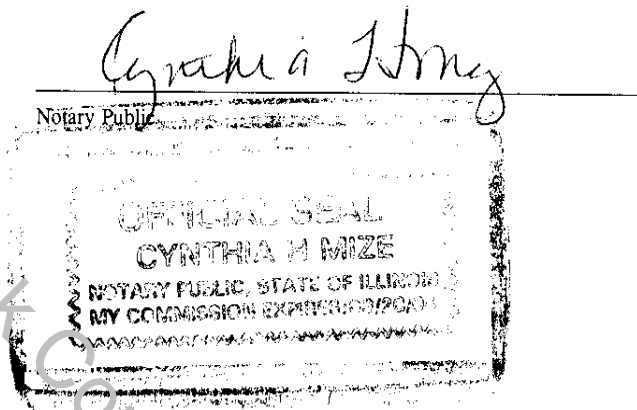 Cynthia H Mize
Notary Public
OFFICIAL SEAL
CYNTHIA H MIZE
NOTARY PUBLIC, STATE OF ILLINOIS
MY COMMISSION EXPIRES: